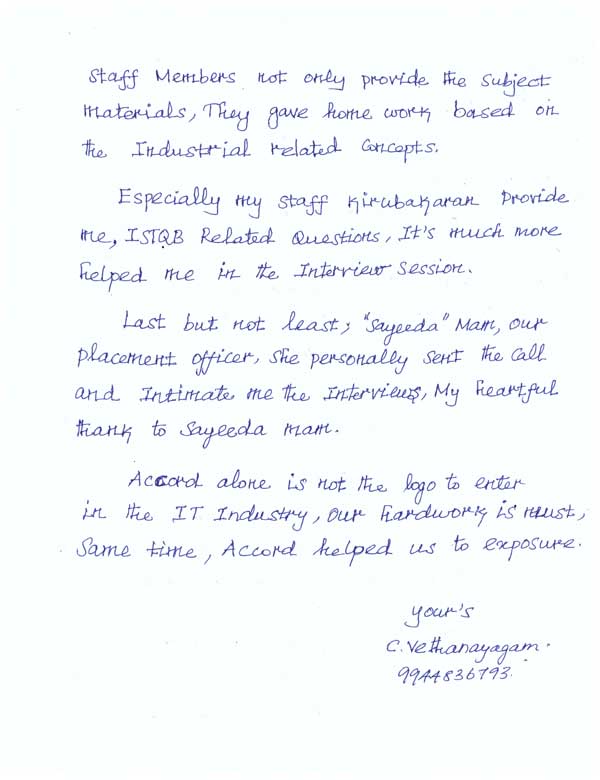 Staff Members not only provide the Subject
materials, They gave home work based on
the Industrial related Concepts.
Especially my staff Kirubakaran Provide
me, ISTQB Related Questions, It's much more
helped me in the Interview Session.
Last but not least; "Sayeeda" Mam, our
placement officer, She personally sent the Call
and Intimate me the Interviews, My heartful
thank to Sayeeda mam.
Accord alone is not the logo to enter
in the IT Industry, our hardwork is must,
Same time, Accord helped us to exposure.
your's
C. Vethanayagam.
9944836793.